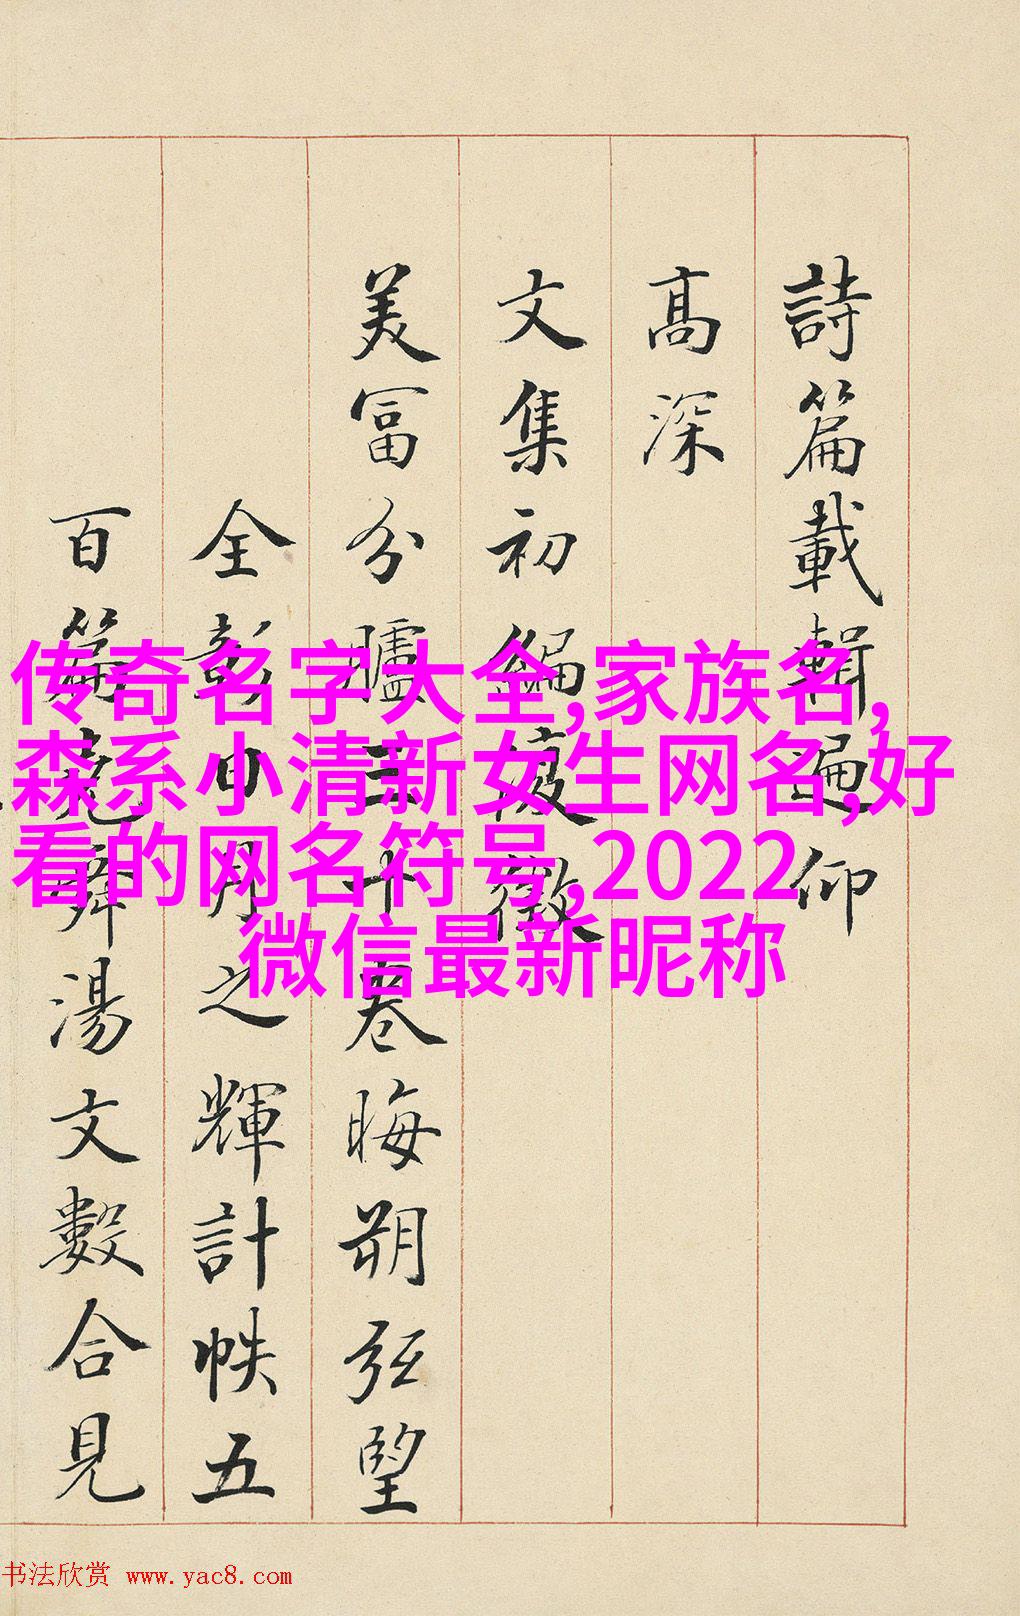 詩篇載輯遍仰
高深
文集初編復徵
美富分臚三十卷晦朔弦望
全彰日月之輝計帙五
百篇堯舜湯文數合見
传奇名字大全,家族名,
森系小清新女生网名,好
看的网名符号,2022
微信最新昵称
书法欣赏 www.yac8.com